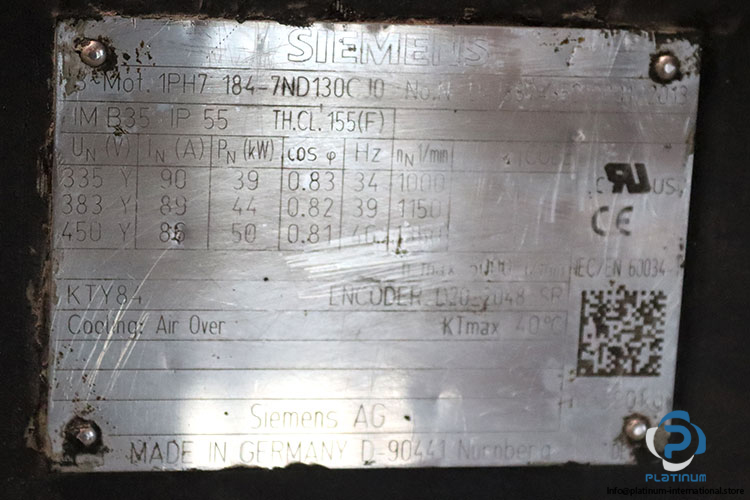 SIEMENS
3~Mot. 1PH7 184-7ND130CJ0 No.N
IM B35 IP 55 TH.CL. 155(F)
UN (V) IN (A) PN (kW) cos φ Hz nN 1/min
335 Y 90 39 0.83 34 1000
383 Y 89 44 0.82 39 1150
450 Y 86 50 0.81
c RU US
CE
max 5000
IEC/EN 60034-1
KTY84 ENCODER D20 2048 SR
Cooling: Air Over KTmax 40°C
Siemens AG
MADE IN GERMANY D-90441 Nürnberg
PLATINUM
info@platinum-international.store